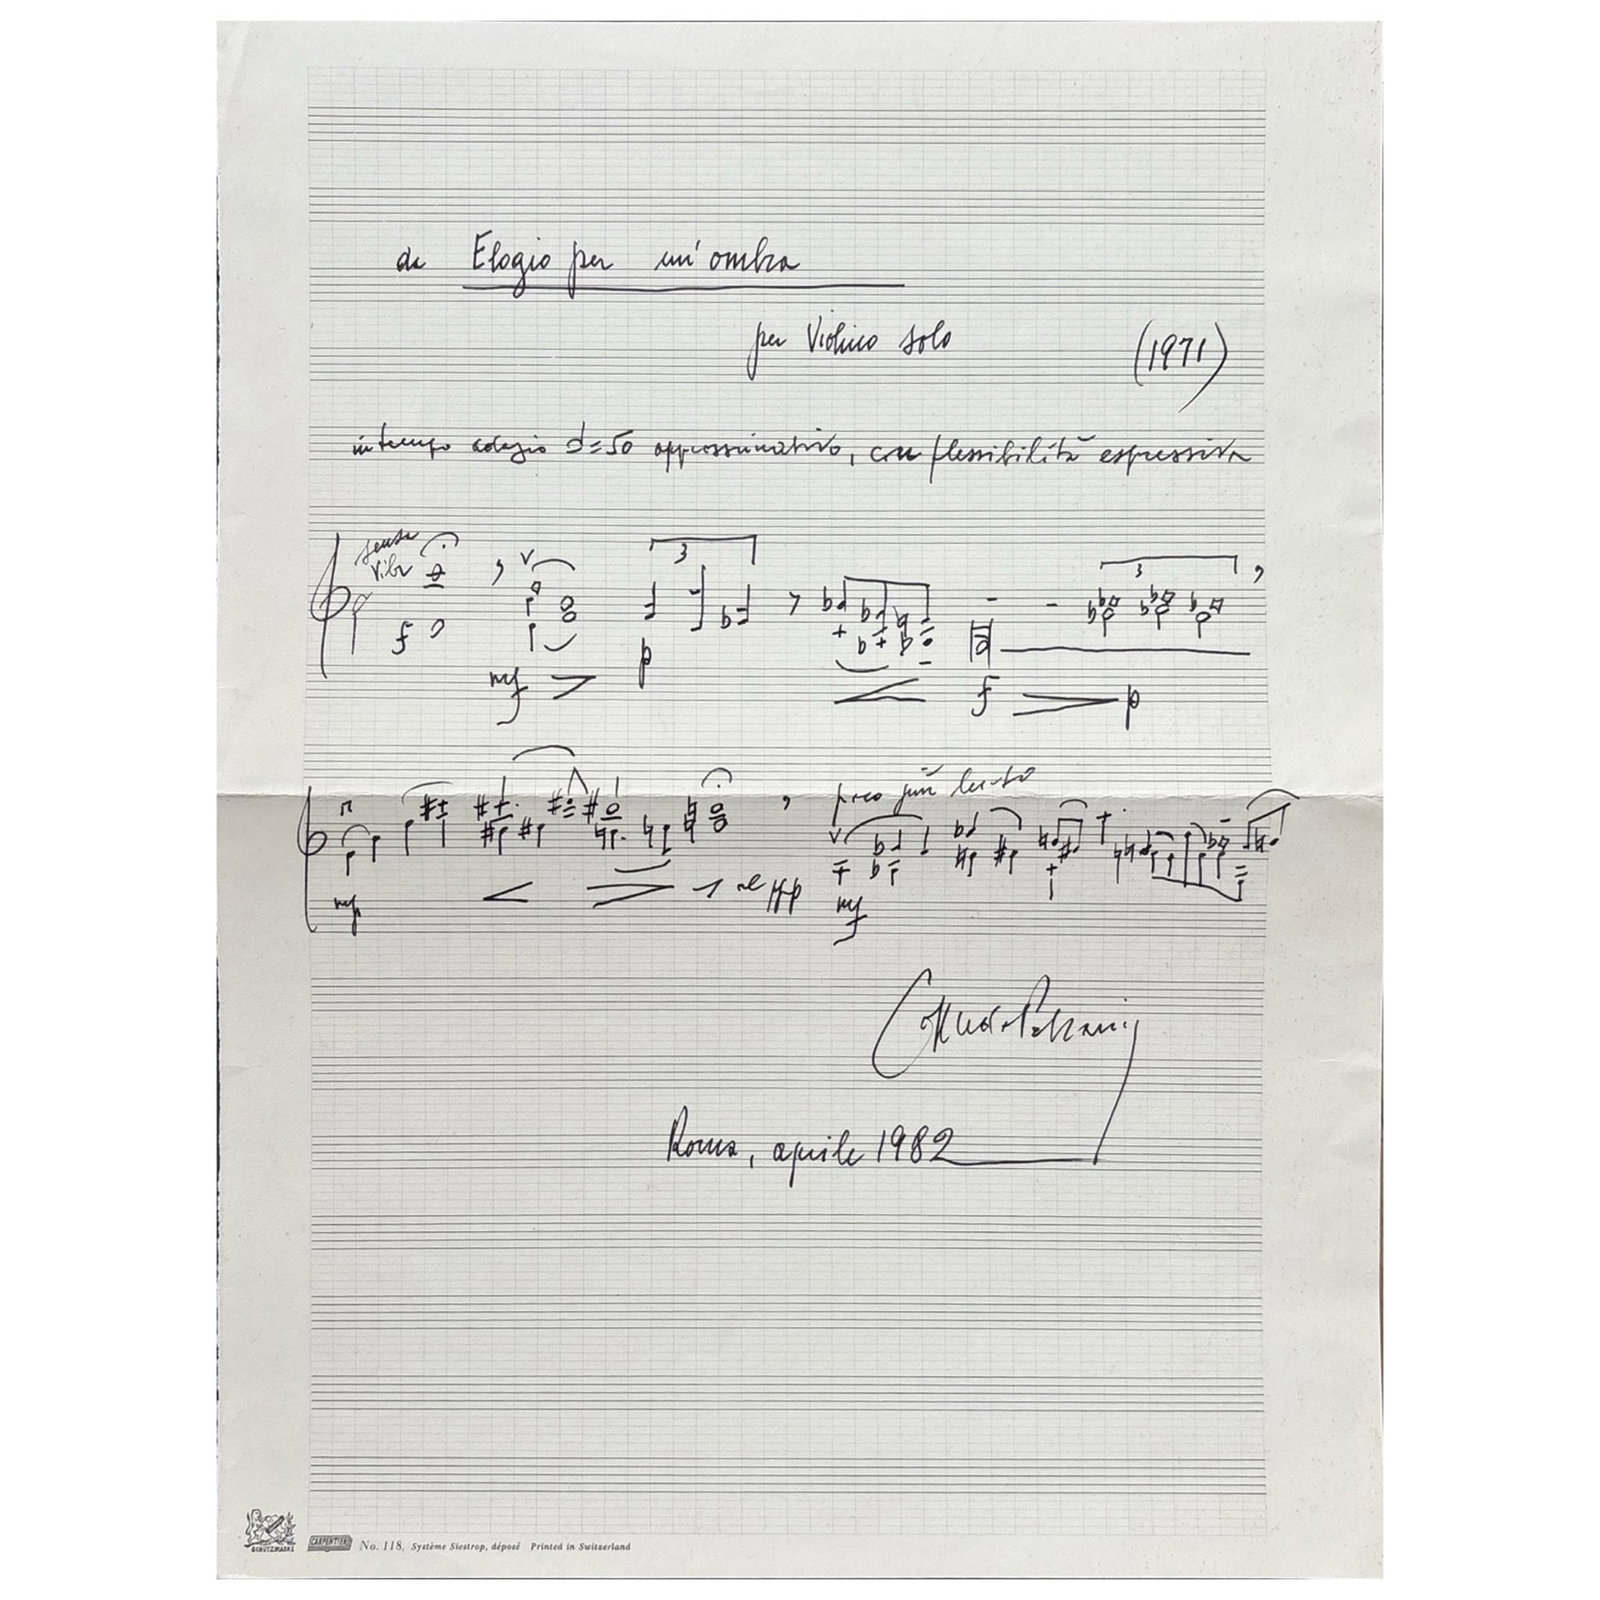 da Elogio per un'ombra
per Violino solo (1971)
in tempo adagio 𝅗𝅥=50 approssimativo, con flessibilità espressiva
senza
vibr
3
3
f
mf
p
f
p
poco più lento
mf
al ppp
mf
Goffredo Petrassi
Roma, aprile 1982
SCHUTZMARKE
CARPENTIER No. 118, Système Siestrop, déposé Printed in Switzerland